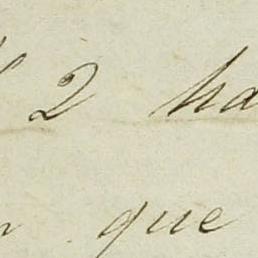 2 ha
que